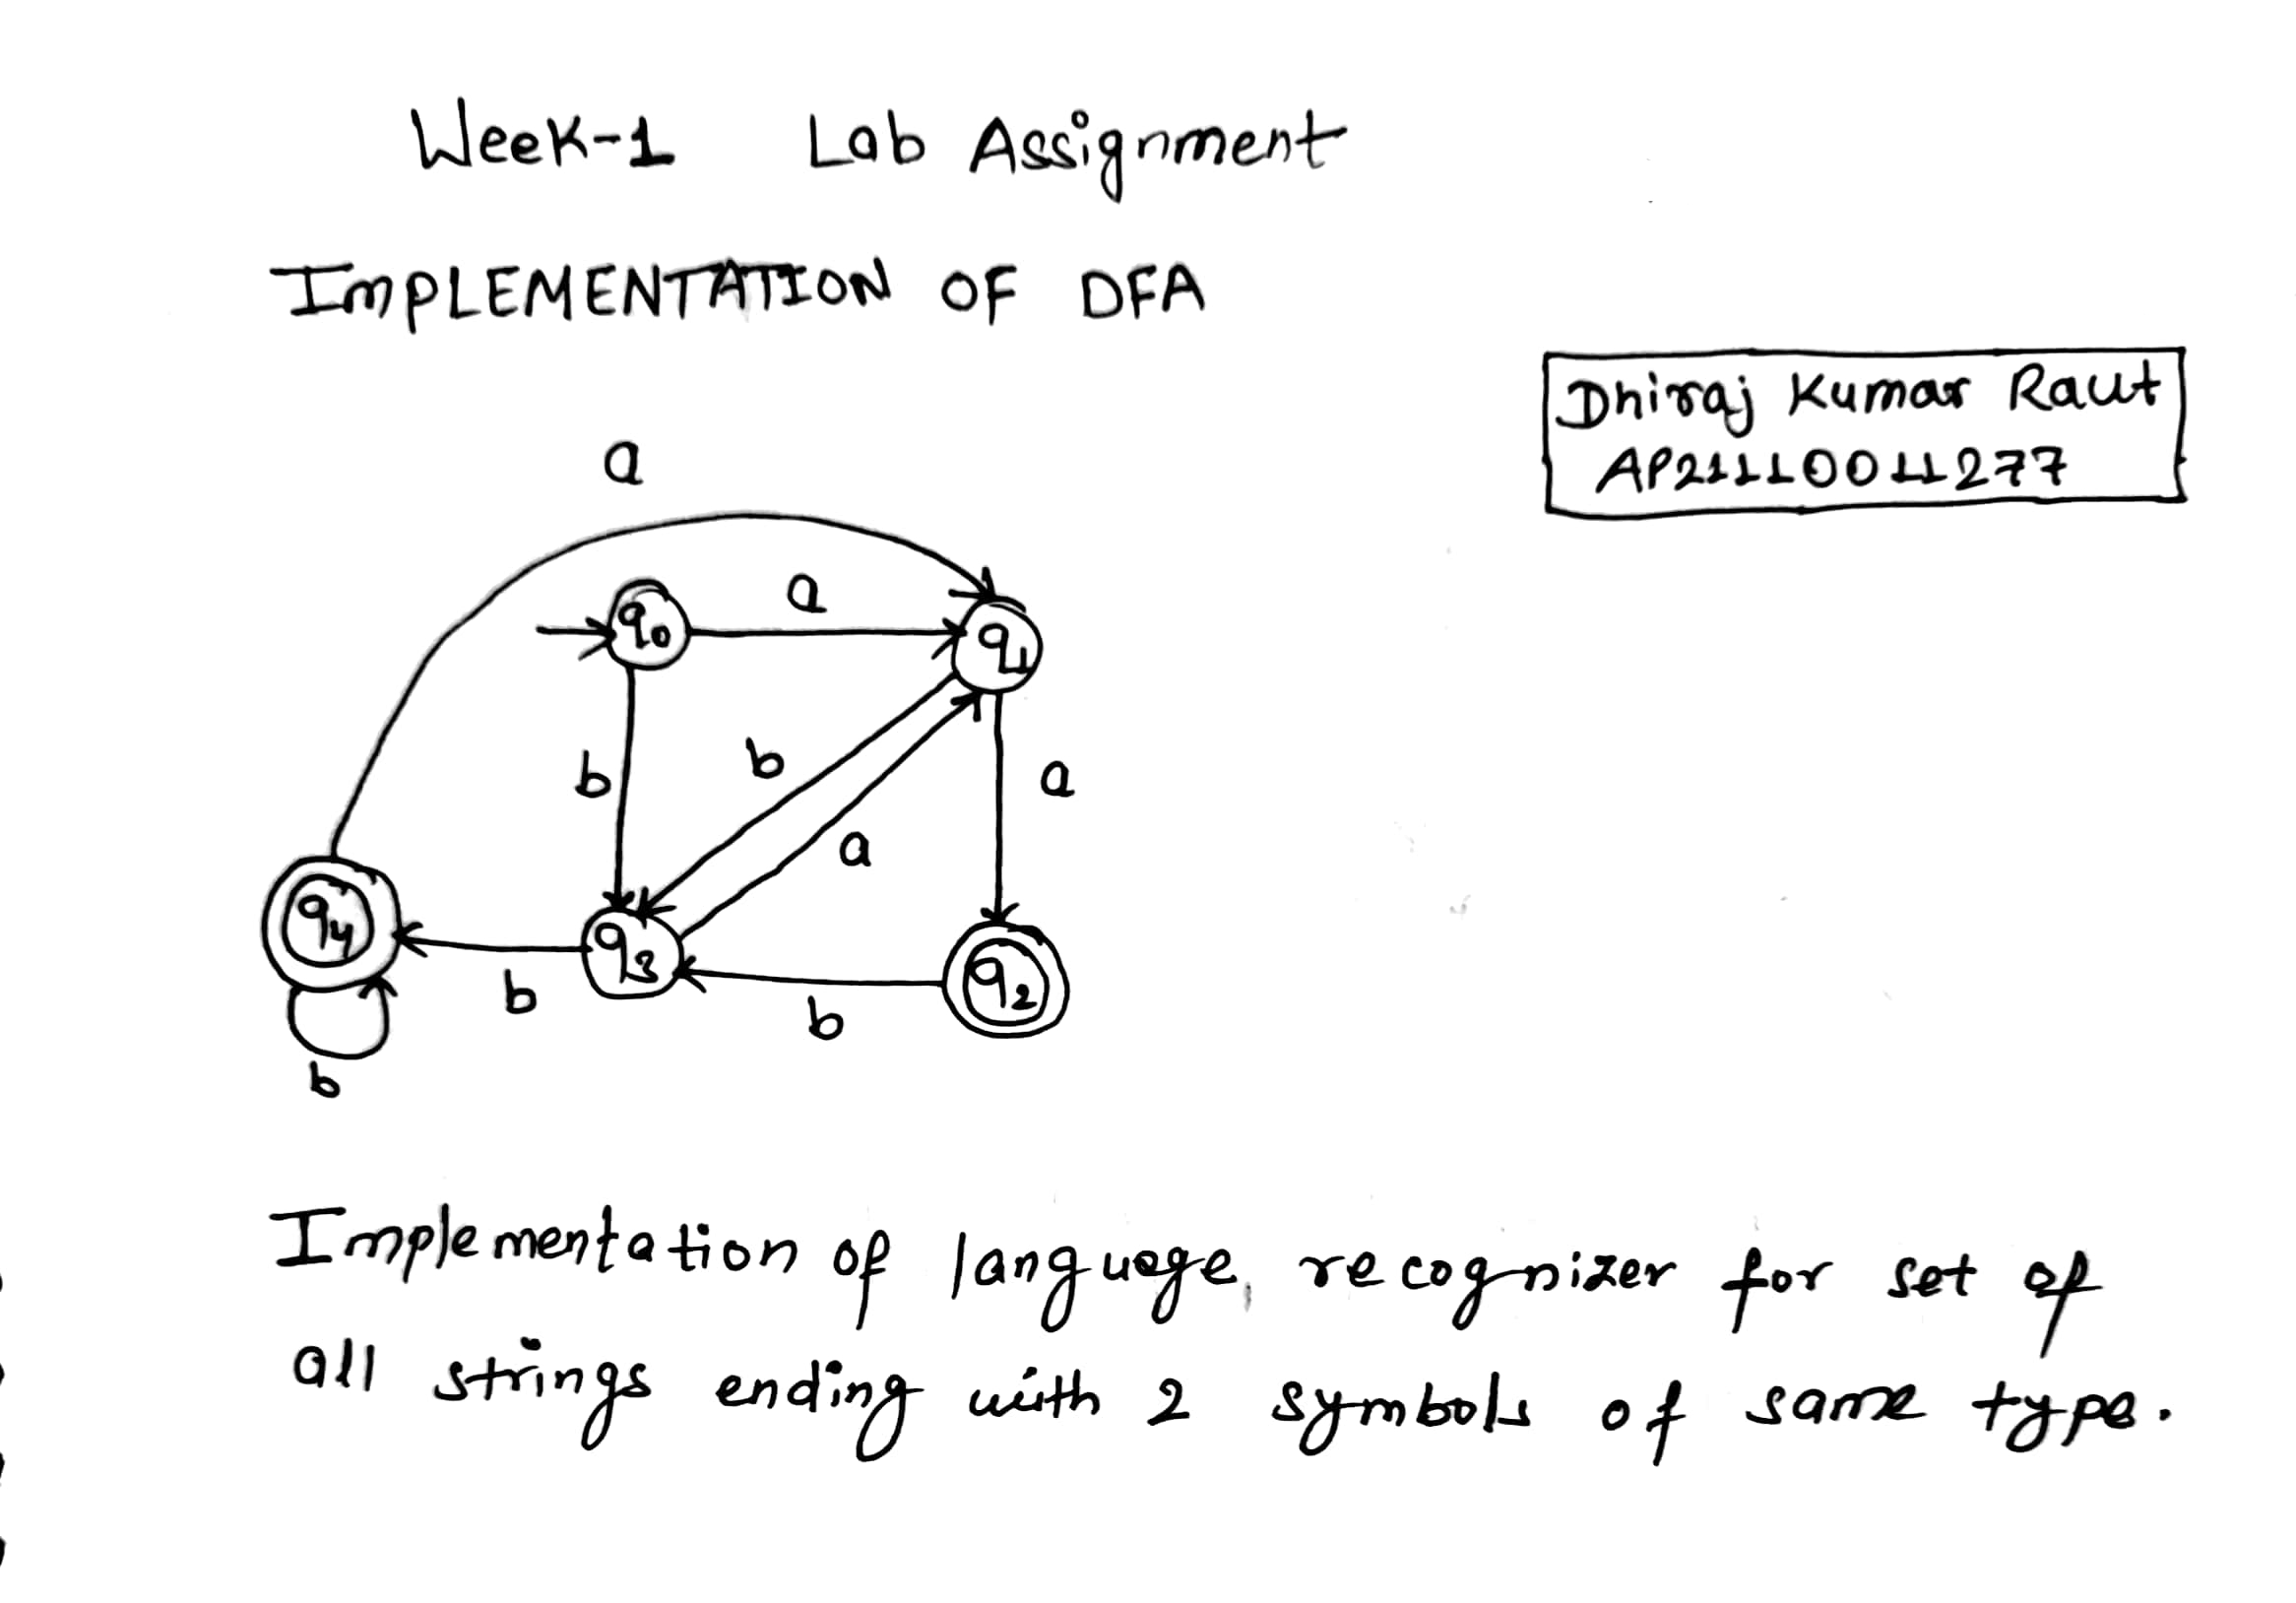 Week-1 Lab Assignment
IMPLEMENTATION OF DFA
Dhiraj Kumar Raut
AP21110011277
a
a
q0
q1
b
b
a
a
q4
q3
q2
b
b
b
Implementation of language recognizer for set of
all strings ending with 2 symbols of same type.